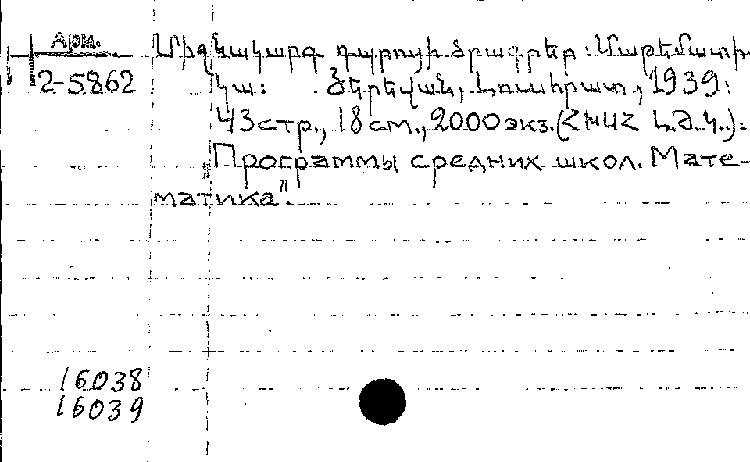 Арм.
2-5862
Միջնակարգ դպրոցի ծրագրեր: Մաթեմատի-
կա: Յերեվան, Լուսհրատ, 1939:
43 стр., 18 см., 2000 экз. (ՀԽՍՀ Լ.Ժ.Կ.):
Программы средних школ. Мате-
матика".
16038
16039